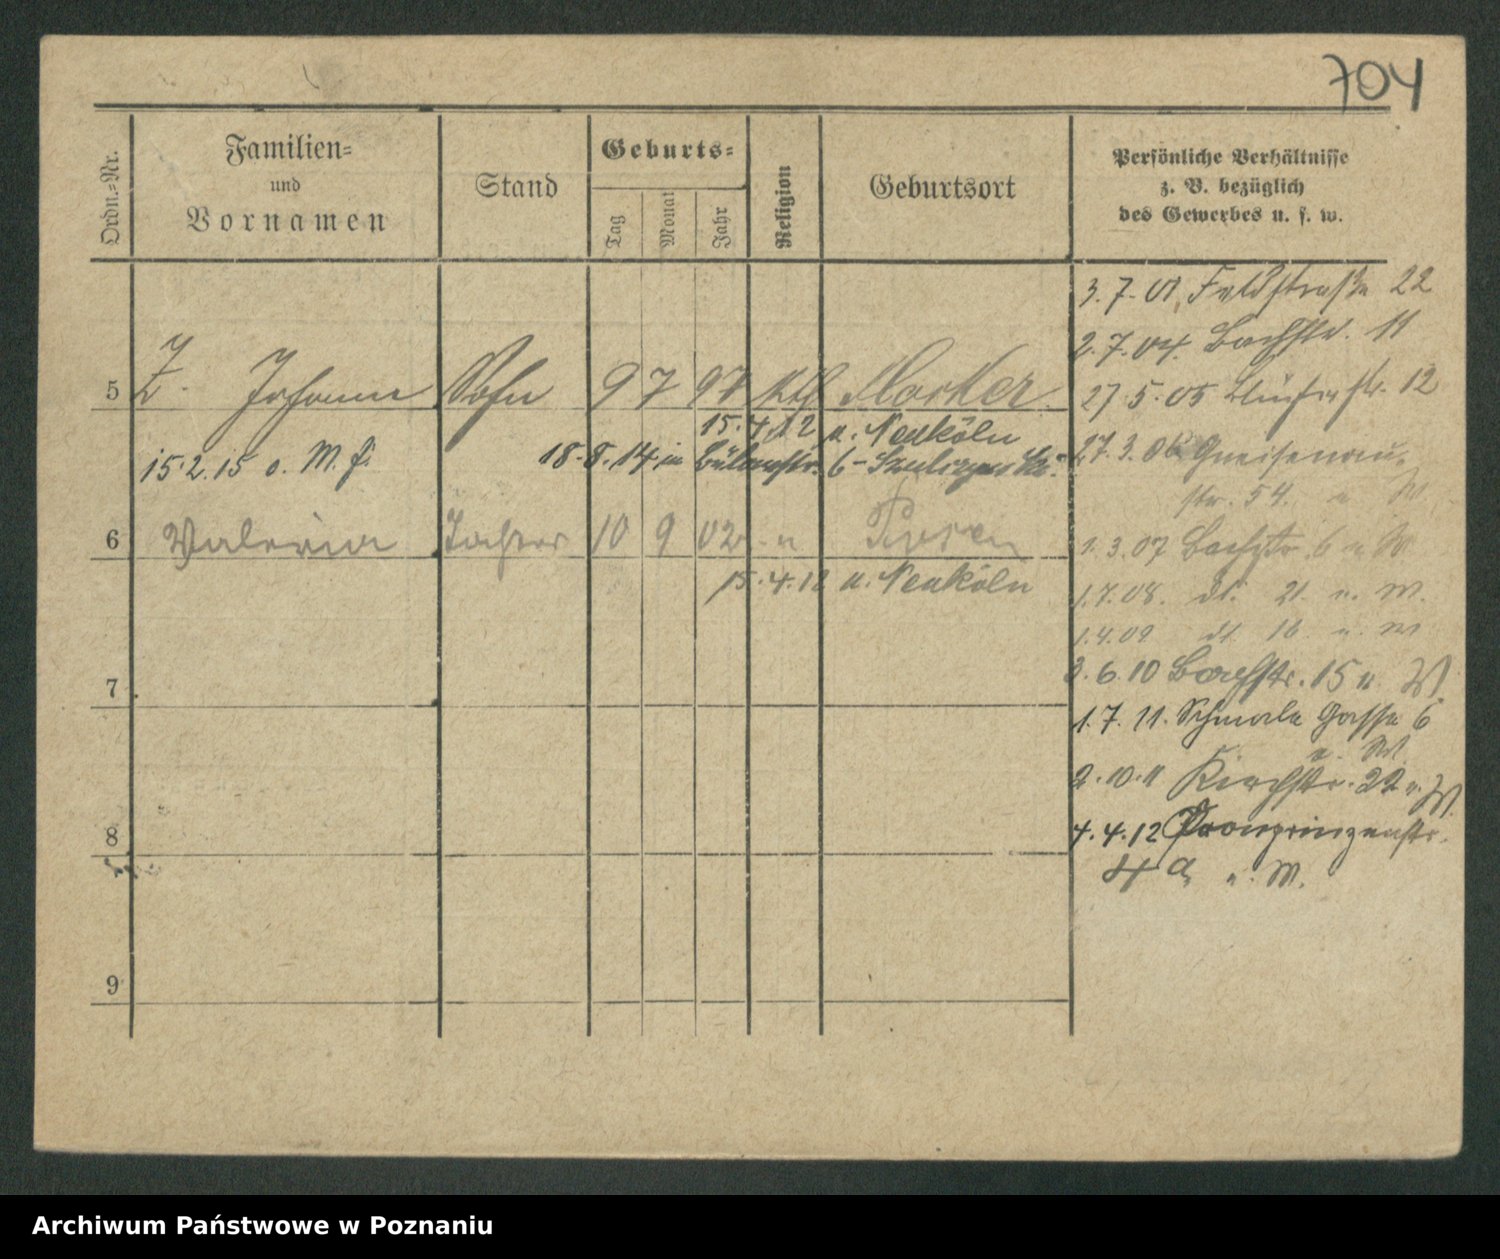 704
Ordn.=Nr.
Familien=
und
Vornamen
Stand
Geburts=
Tag
Monat
Jahr
Religion
Geburtsort
Persönliche Verhältnisse
z. B. bezüglich
des Gewerbes u. s. w.
3.7.01. Feldstraße 22
2.7.04. Bachstr. 11
5 Z. Johann Sohn 9 7 97 kth
27.5.05 12
15.4.12 n. Neuköln
15.2.15 o. M. f. 18.8.14 in Bülowstr. 6
27.3.06 Gneisenau-
str. 54. u. W.
6 Valeria Tochter 10 9 02 " Posen
1.3.07 Bachstr. 6 u. W
15.4.12 n. Neuköln
1.7.08. dt. 21. u. W.
1.4.09 dt. 16 u. W
3.6.10 Bachstr. 15 u. W.
7
1.7.11. Schmale Gasse 6
u. W.
2.10.11 Kirchstr. 22 u. W.
8
4.4.12 Kronprinzenstr.
4 a u. W.
9
Archiwum Państwowe w Poznaniu